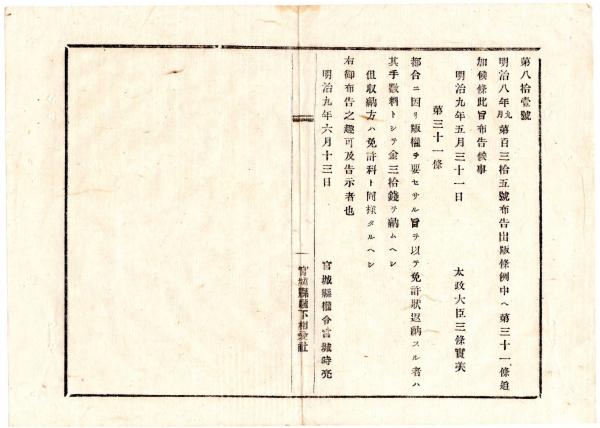 第八拾壹號
明治八年九月第百三拾五號布告出版條例中ヘ第三十一條追
加候條此旨布告候事
明治九年五月三十一日　太政大臣三條實美
第三十一條
都合ニ因リ版權ヲ要セサル旨ヲ以テ免許狀返納スル者ハ
其手數料トシテ金三拾錢ヲ納ムヘシ
但収納方ハ免許料ト同樣タルヘシ
右御布告之趣可及告示者也
明治九年六月十三日　宮城縣權令宮城時亮
宮城縣廳下相愛社